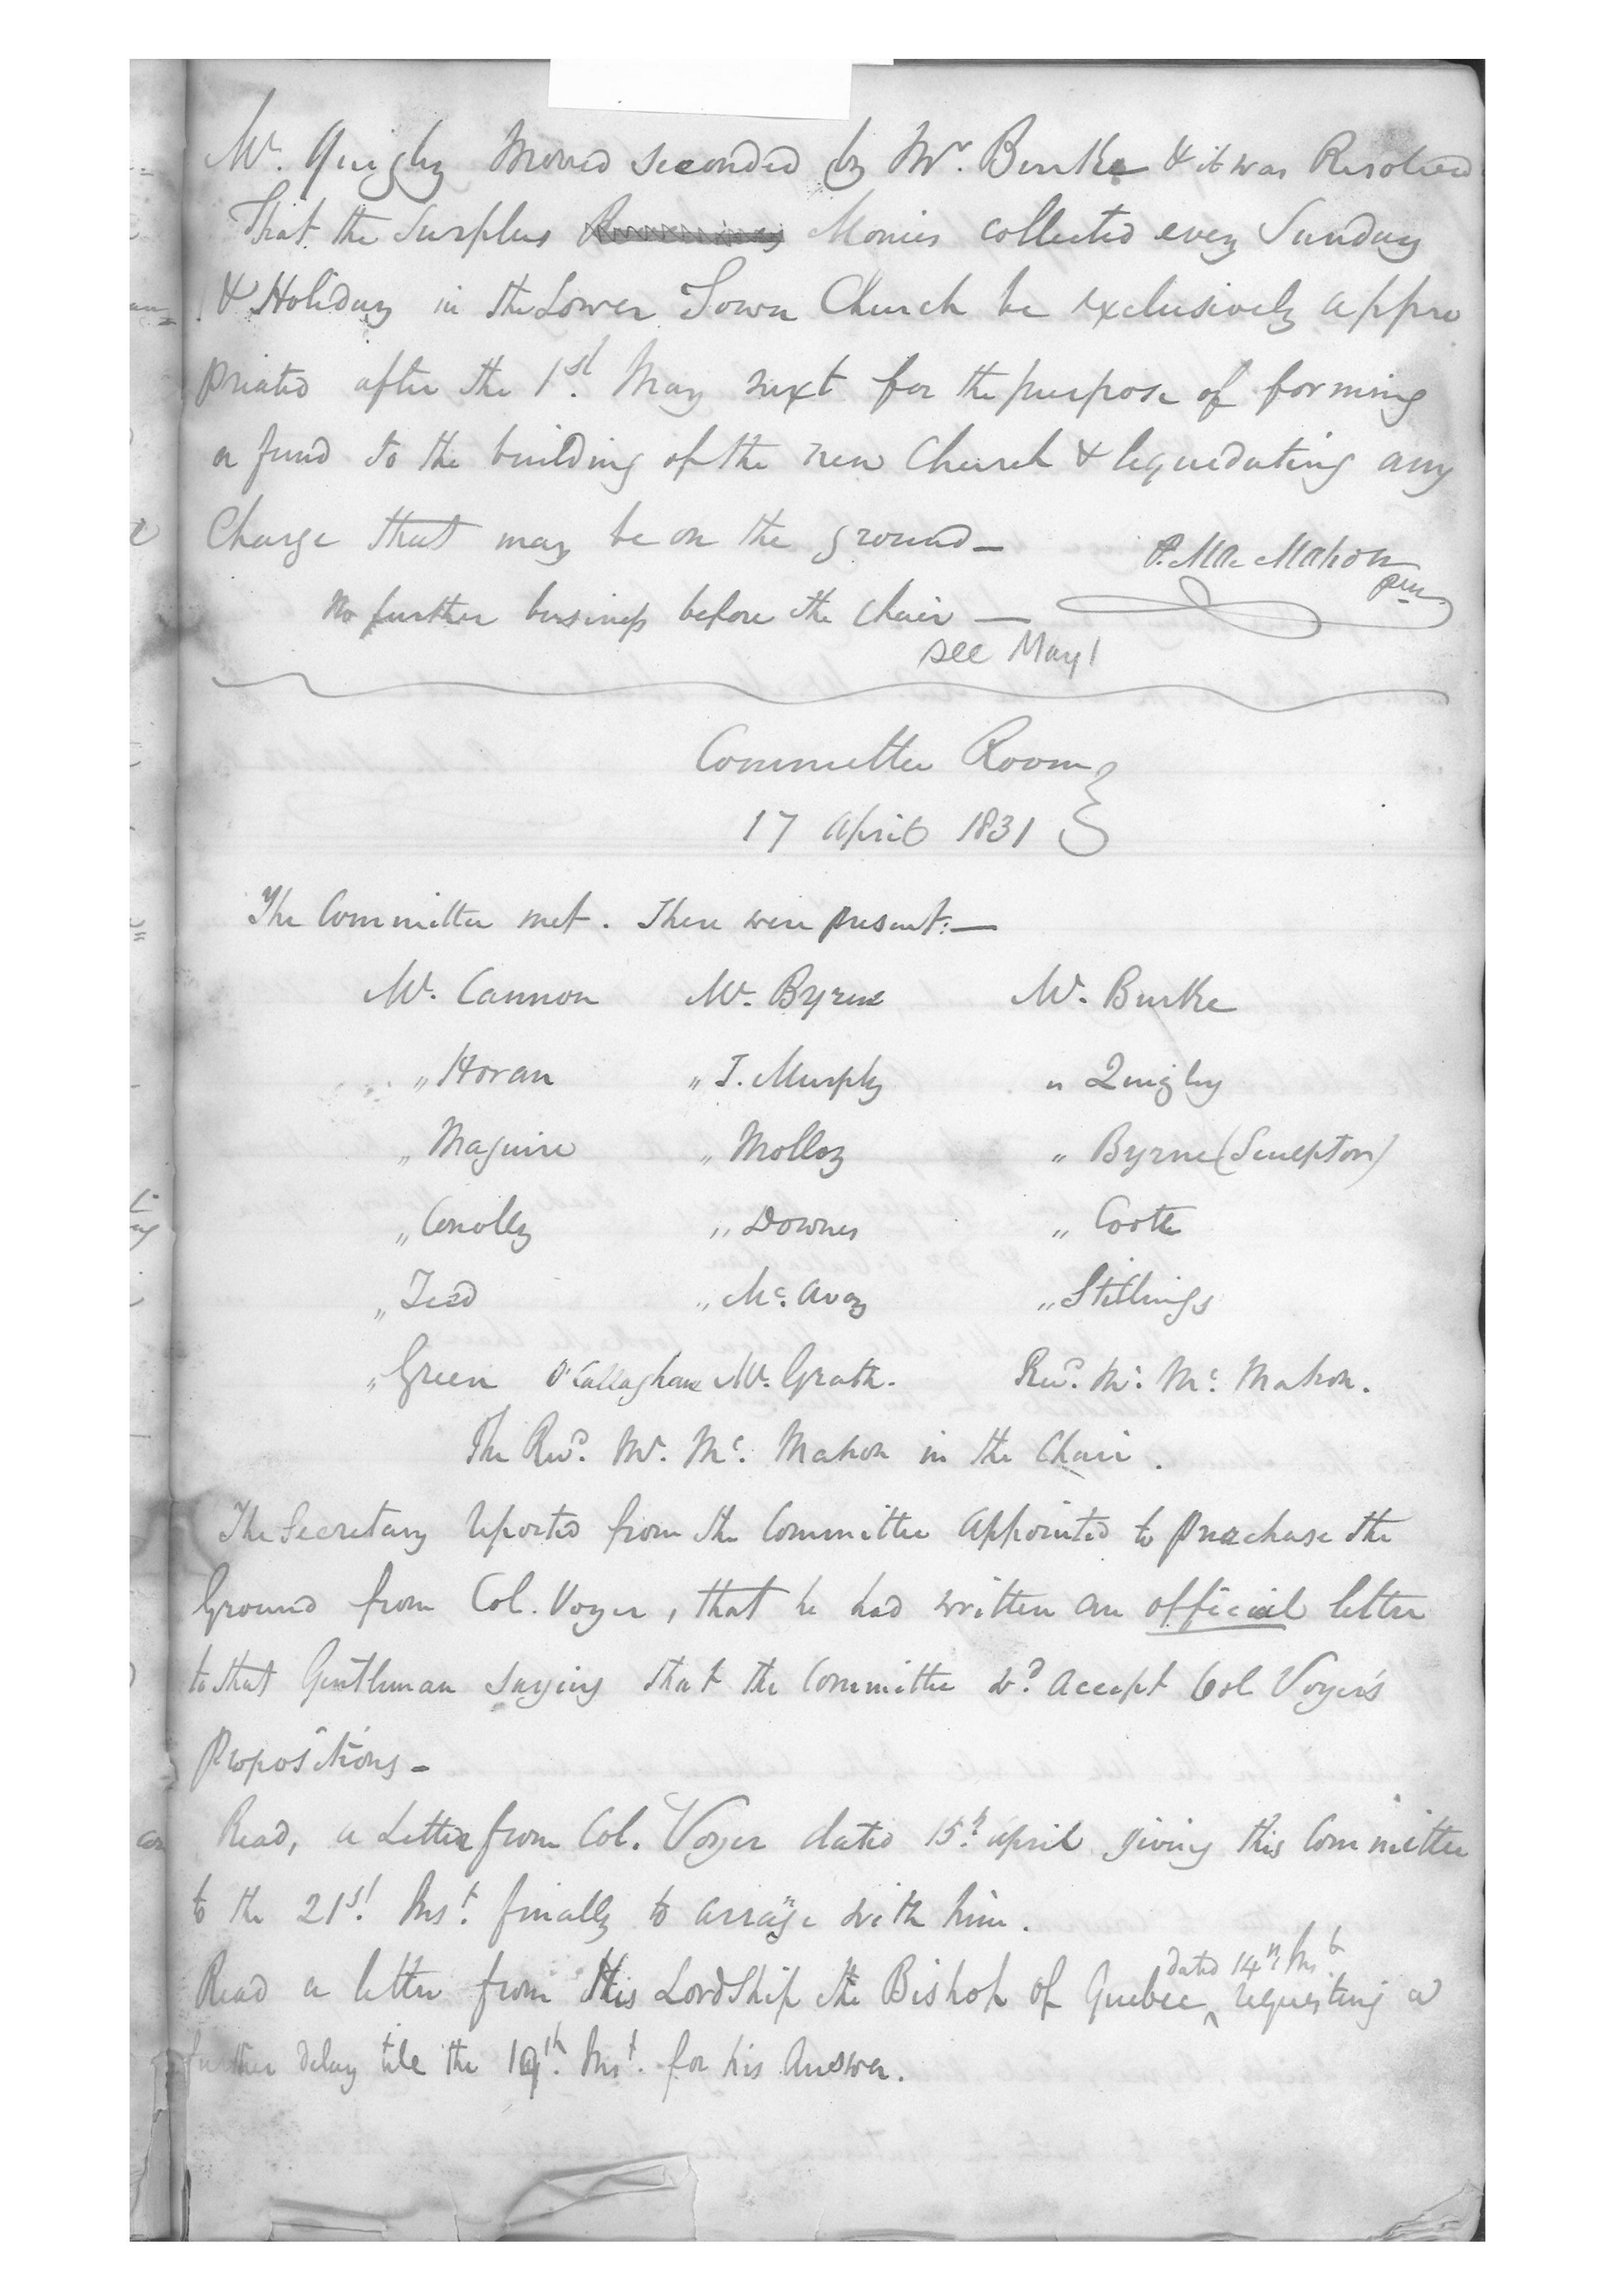 Mr. Quigly Moved seconded by Mr. Burke & it was Resolved
That the Surplus Monies collected every Sunday
& Holiday in the Lower Town Church be exclusively appro
priated after the 1st. May next for the purpose of forming
a fund to the building of the new Church & liquidating any
Charge that may be on the ground—
P. Mc Mahon
No further business before the Chair —
see May 1
Committee Room
17 April 1831
The Committee met. There were present:—
Mr. Cannon Mr. Byrne Mr. Burke
" Horan " J. Murphy " Quigley
" Maguire " Molloy " Byrne (Sculptor)
" Conolly " Downes " Coote
" Teed " Mc. Avoy " Stillings
" Green O'Callaghan Mc. Grath. Revd. Mr. Mc. Mahon.
The Revd. Mr. Mc. Mahon in the Chair.
The Secretary reported from the Committee appointed to purchase the
Ground from Col. Voyer, that he had written an official letter
to that Gentleman saying that the Committee wd. accept Col Voyer's
Propositions—
Read, a Letter from Col. Voyer dated 15th. april giving this Committee
to the 21st. Inst. finally to arrange with him.
dated 14th Inst.
Read a letter from His Lordship the Bishop of Quebec ^ requesting a
further delay till the 19th. Inst. for his Answer.